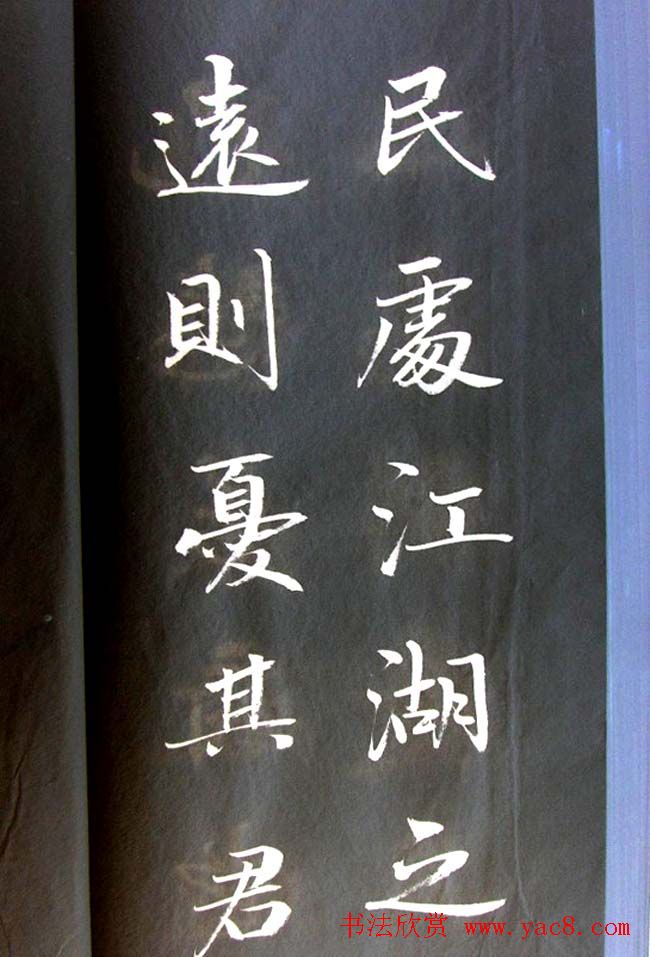 民處江湖之
遠則憂其君
书法欣赏 www.yac8.com